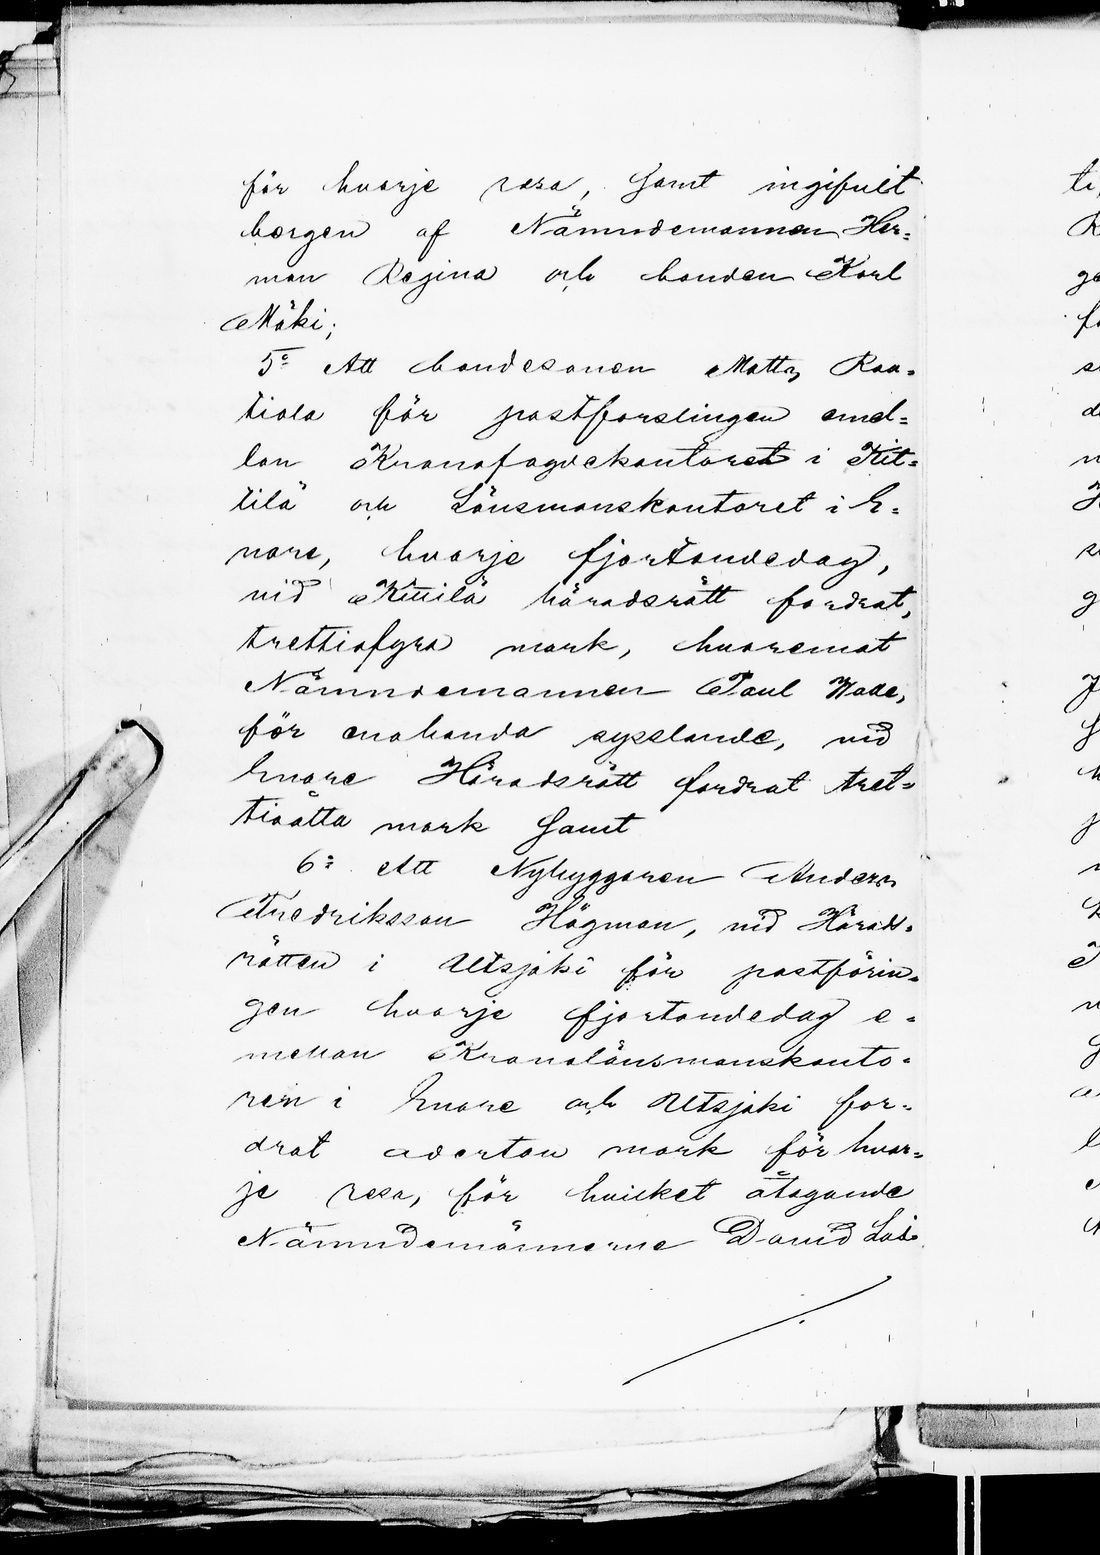 för hvarje resa, samt ingifvit
borgen af Nämndemannen Her-
man Regina och bonden Karl
Mäki;
5o Att bondesonen Matts Raa-
tiala för postforslingen emel-
lan Kronofogdekontoret i Kit-
tilä och Länsmanskontoret i E-
nare, hvarje fjortondedag,
vid Kittilä häradsrätt fordrat,
trettiofyra mark, hvaremot
Nämndemannen Paul
för enahanda sysslande, vid
Enare Häradsrätt fordrat tret-
tioåtta mark samt
6o Att Nybyggaren Anders
Fredriksson Högman, vid Härads-
rätten i Utsjoki för postförin-
gen hvarje fjortondedag e-
mellan Kronolänsmanskonto-
ren i Enare och Utsjoki for-
drat aderton mark för hvar-
je resa, för hvilket åtagande
Nämndemännerne David